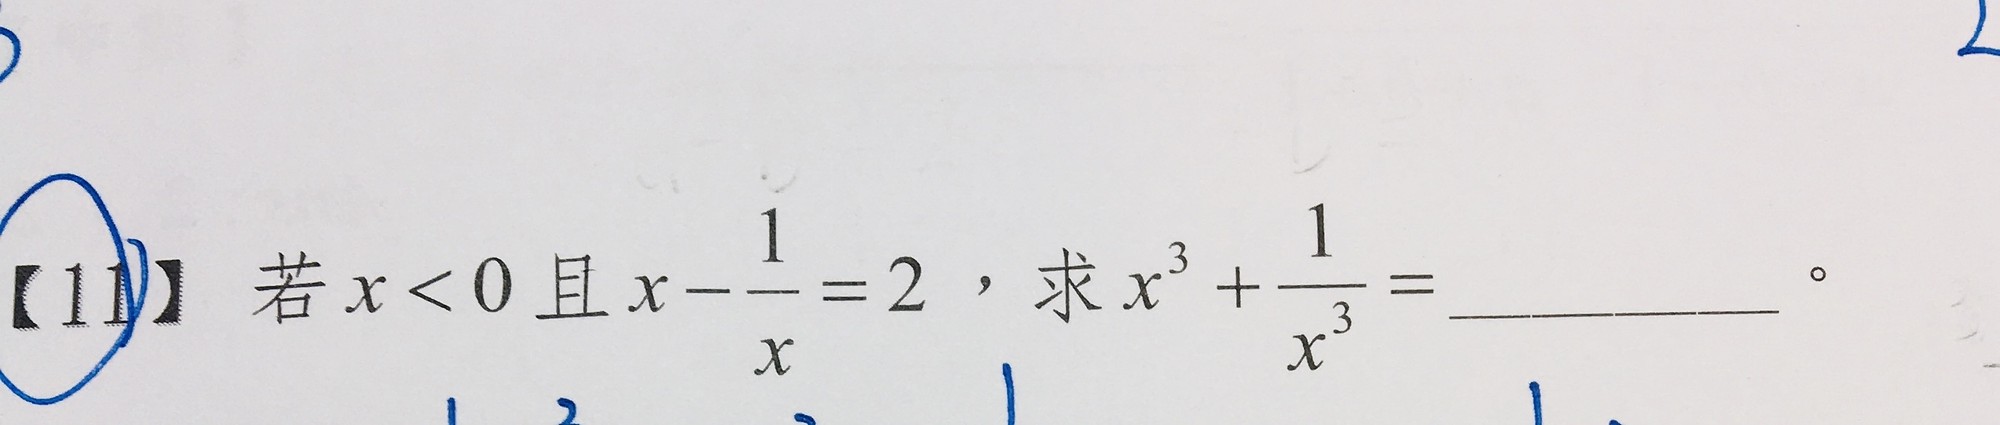 【11】 若 x < 0 且 x - 1/x = 2 ，求 x³ + 1/x³ = ________。